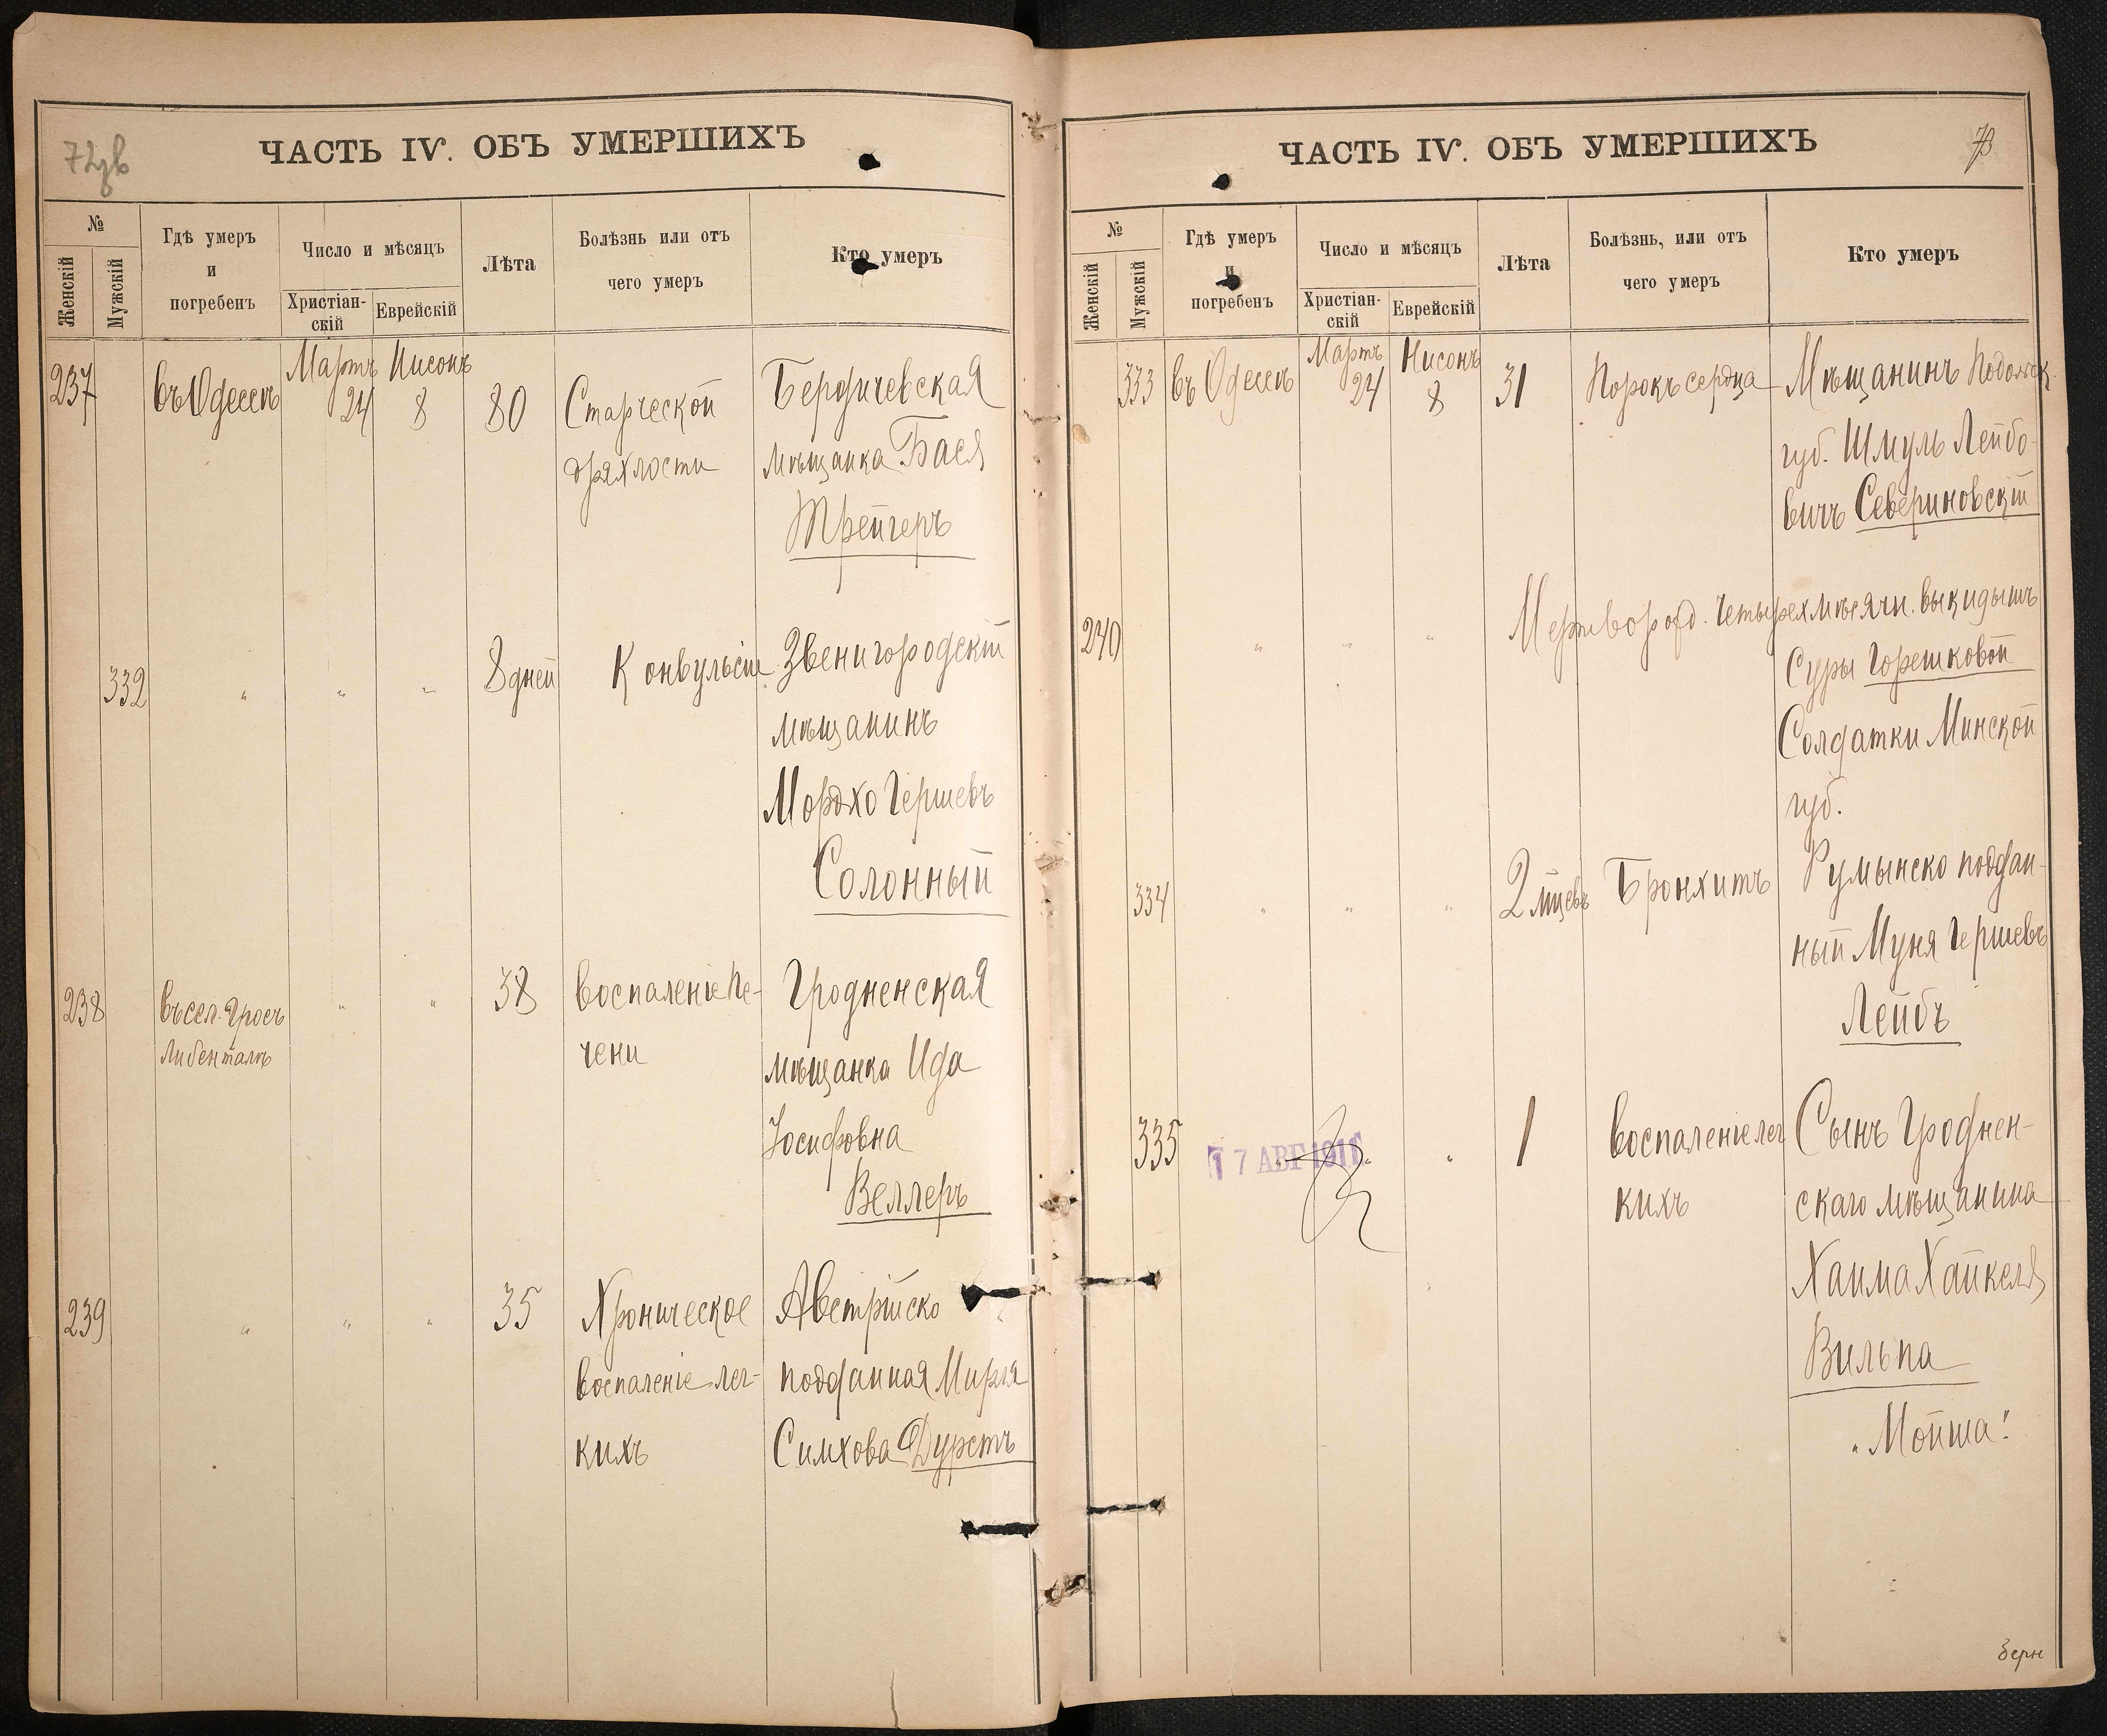 72об
ЧАСТЬ IV. ОБЪ УМЕРШИХЪ
№
Женскій
Мужскій
Гдѣ умеръ
и
погребенъ
Число и мѣсяцъ
Христіан-
скій
Еврейскій
Лѣта
Болѣзнь или отъ
чего умеръ
Кто умеръ
237
въ Одессѣ
Мартъ
24
Нисонъ
8
80
Старческой
дряхлости
Бердичевская
мѣщанка Бася
Трейгеръ
332
" " "
8 дней
Конвульсіи
Звенигородскій
мѣщанинъ
Мордхо Гершевъ
Солонный
238
въ сел. Гросъ
Либенталѣ
" "
38
Воспаленіе пе-
чени
Гродненская
мѣщанка Ида
Іосифовна
Веллеръ
239
" " "
35
Хроническое
воспаленіе лег-
кихъ
Австрійско
подданная Мирля
Симхова Дурстъ
ЧАСТЬ IV. ОБЪ УМЕРШИХЪ
73
№
Женскій
Мужскій
Гдѣ умеръ
и
погребенъ
Число и мѣсяцъ
Христіан-
скій
Еврейскій
Лѣта
Болѣзнь, или отъ
чего умеръ
Кто умеръ
333
въ Одессѣ
Мартъ
24
Нисонъ
8
31
Порокъ сердца
Мѣщанинъ Подольск.
губ. Шмуль Лейбо-
вичъ Севериновскій
240
" " "
Мертворожд. четырехмѣсячн. выкидышъ
Суры Горешковой
Солдатки Минской
губ.
334
" " "
2 мѣцевъ
Бронхитъ
Румынско поддан-
ный Муня Гершевъ
Лейбъ
335
17 АВГ 1911
" " "
1
Воспаленіе лег
кихъ
Сынъ Гроднен-
скаго мѣщанина
Хаима Хайкеля
Вильпа
"Мойша"